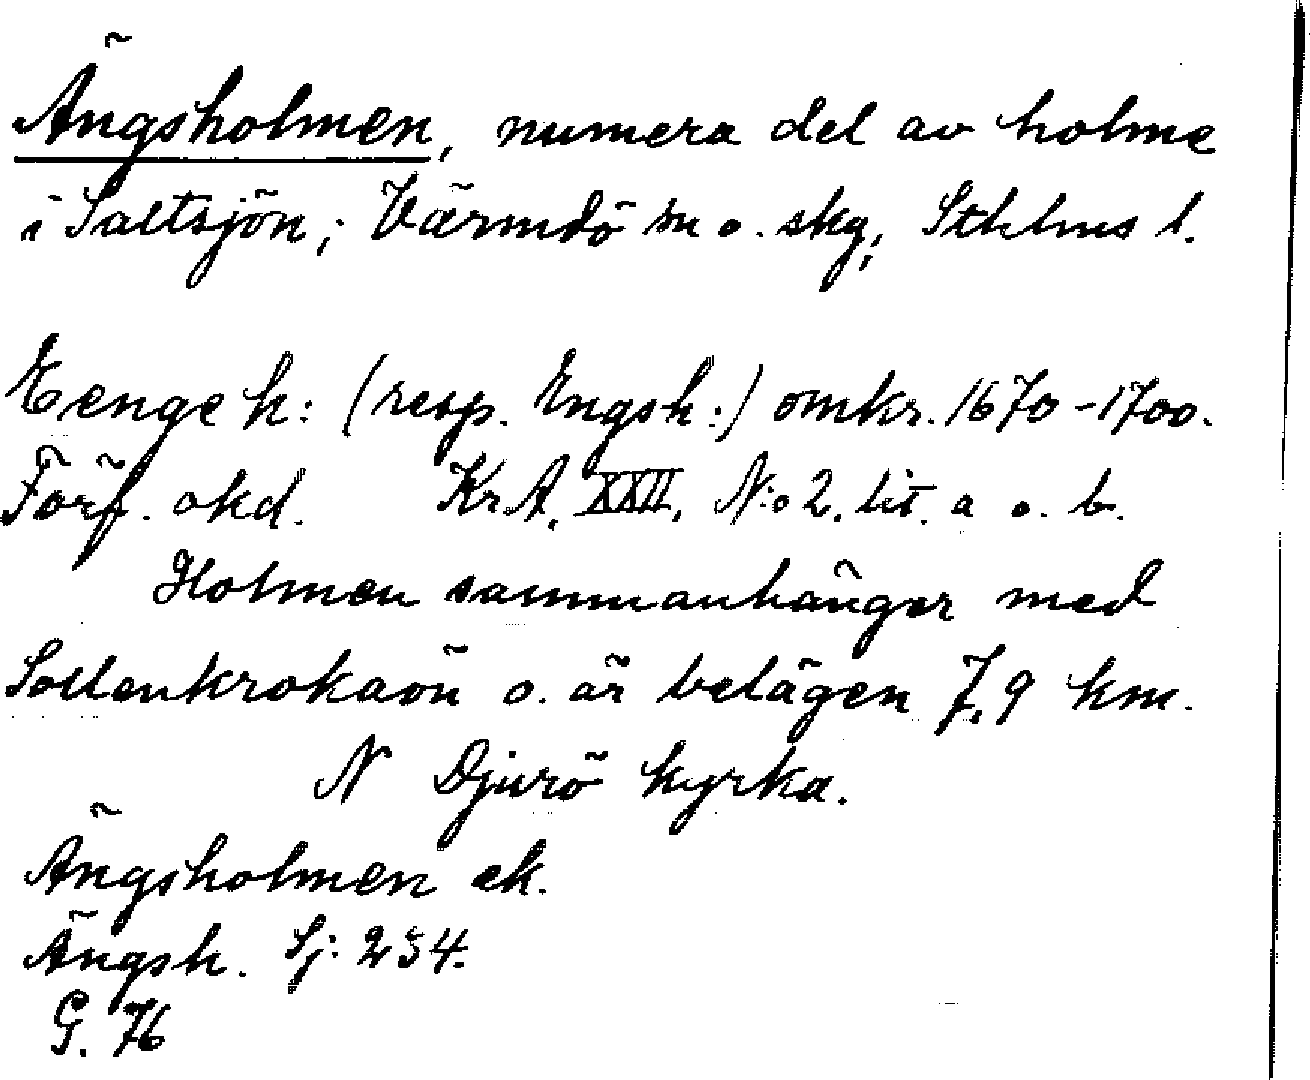 Ängsholmen, numera del av holme
i Saltsjön; Värmdö sn o. skg; Sthlms l.
Eengeh: (resp. Engsh:) omkr. 1670-1700.
Förf. okd. KrA, XXII, N:o 2. lit. a o. b.
Holmen sammanhänger med
Sollenkrokaön o. är belägen 7,9 km.
N Djurö kyrka.
Ängsholmen ek.
Ängsh. Sj: 234.
G. 76